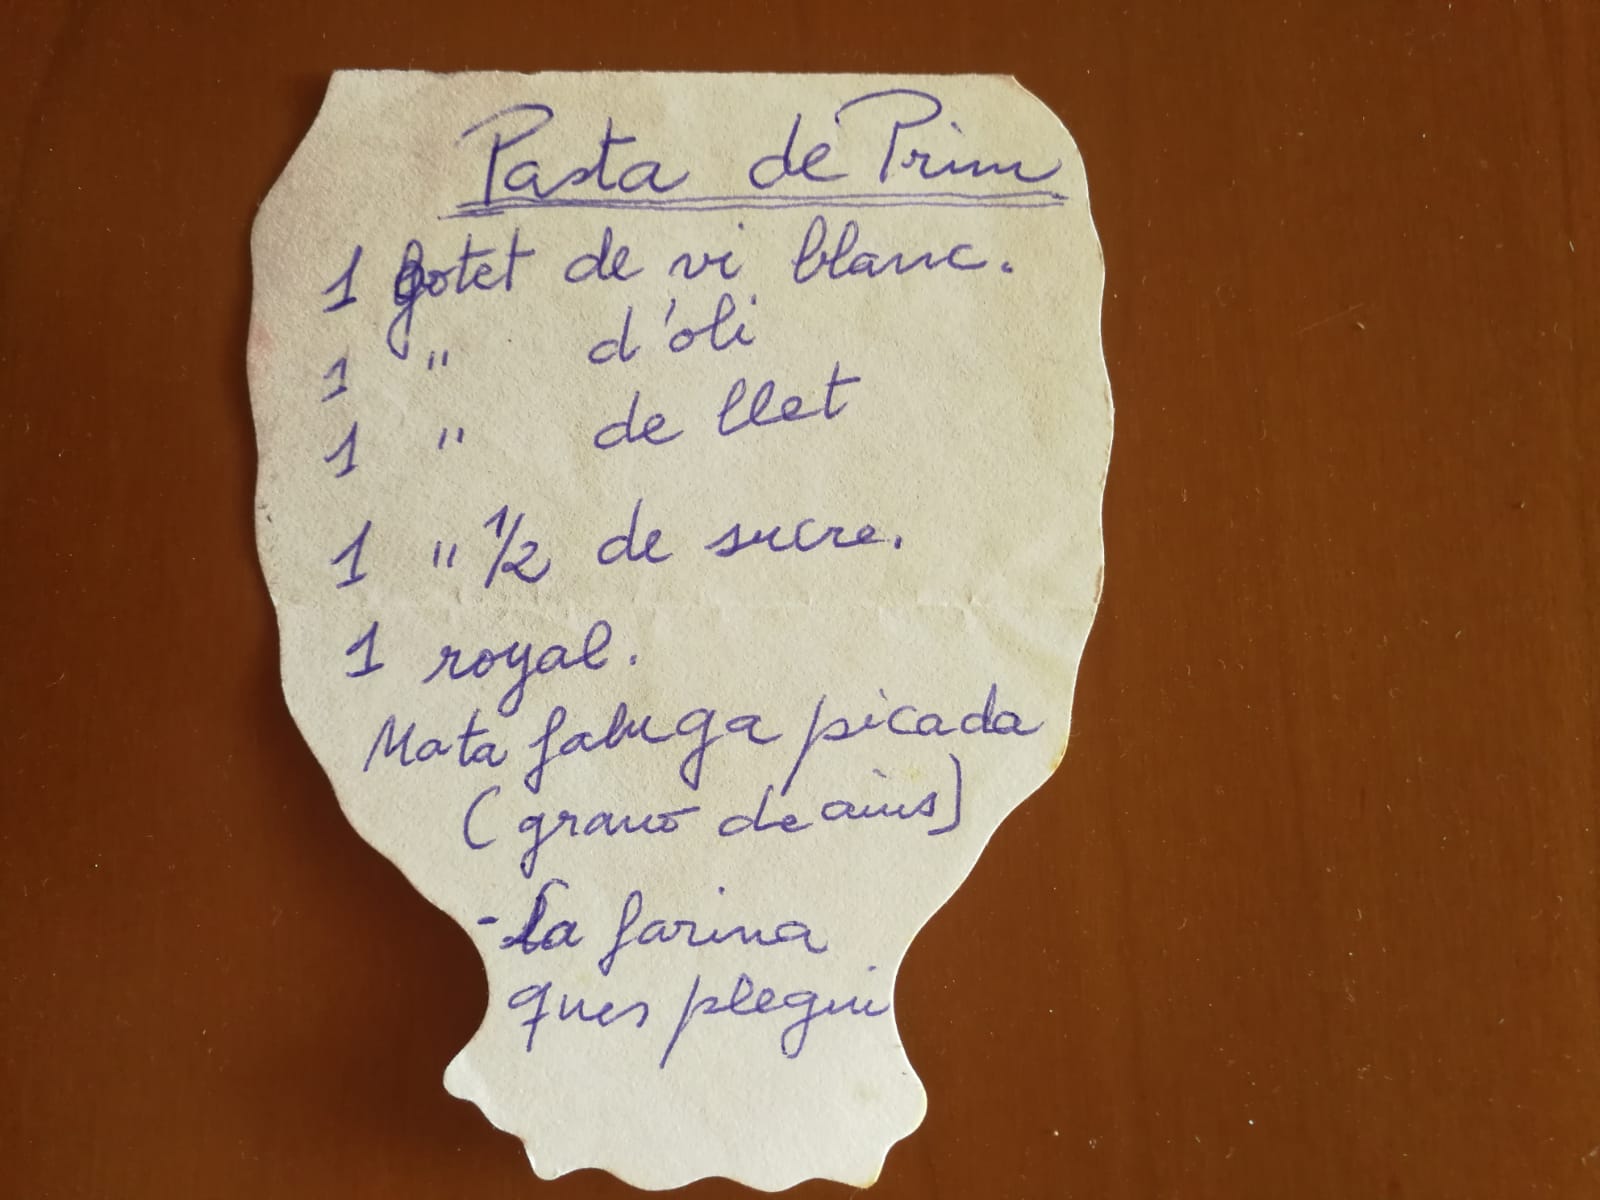 Pasta de Prim
1 gotet de vi blanc.
1 " d'oli
1 " de llet
1 " 1/2 de sucre.
1 royal.
Mata faluga picada
(grano de anis)
- La farina
ques plegui